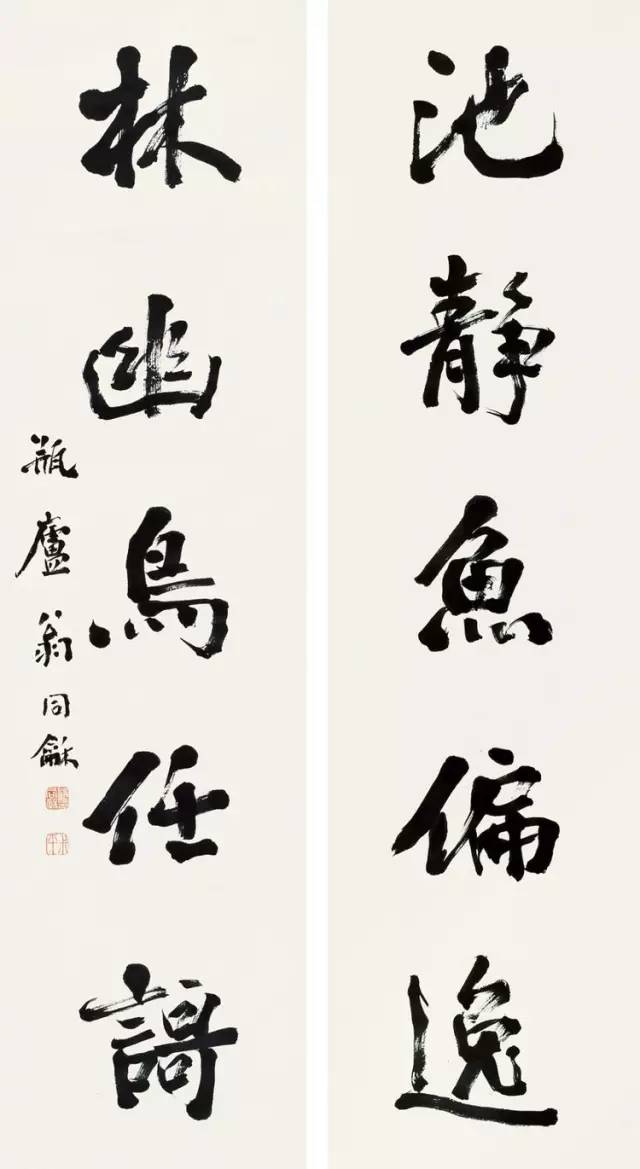 池靜魚偏逸
林幽鳥任謌
瓶廬翁同龢